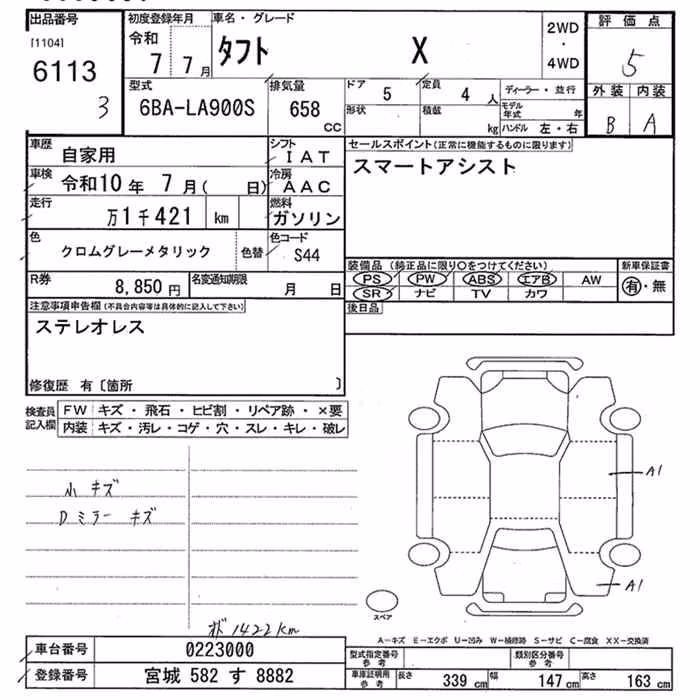 出品番号 初度登録年月 車名・グレード 2WD・4WD 評価点
[1104] 令和 タフト X 5
6113 7 7月
3
型式 排気量 ドア 定員 ディーラー・並行 外装 内装
6BA-LA900S 658 CC 5 4人 モデル年式 年 B A
形状 積載 kg ハンドル 左・右
車歴 自家用 シフト IAT セールスポイント(正常に機能するものに限ります)
車検 令和10年 7月( 日) 冷房 AAC スマートアシスト
走行 万1千421 km 燃料 ガソリン
色 クロムグレーメタリック 色替 色コード S44
R券 8,850円 名変通知期限 月 日
装備品(純正品に限り○をつけてください) 新車保証書
PS PW ABS エアB AW 有・無
SR ナビ TV カワ
後日品
注意事項申告欄(不具合内容等は具体的に記入して下さい)
ステレオレス
修復歴 有〔箇所 〕
検査員記入欄 FW キズ・飛石・ヒビ割・リペア跡・×要
内装 キズ・汚レ・コゲ・穴・スレ・キレ・破レ
小キズ
Dミラーキズ
A1
A1
スペア
オド1422km
A-キズ E-エクボ U-凹み W-補修跡 S-サビ C-腐食 XX-交換済
車台番号 0223000 型式指定番号 参考 類別区分番号 参考
登録番号 宮城 582 す 8882 車庫証明用 参考 長さ 339cm 幅 147cm 高さ 163cm